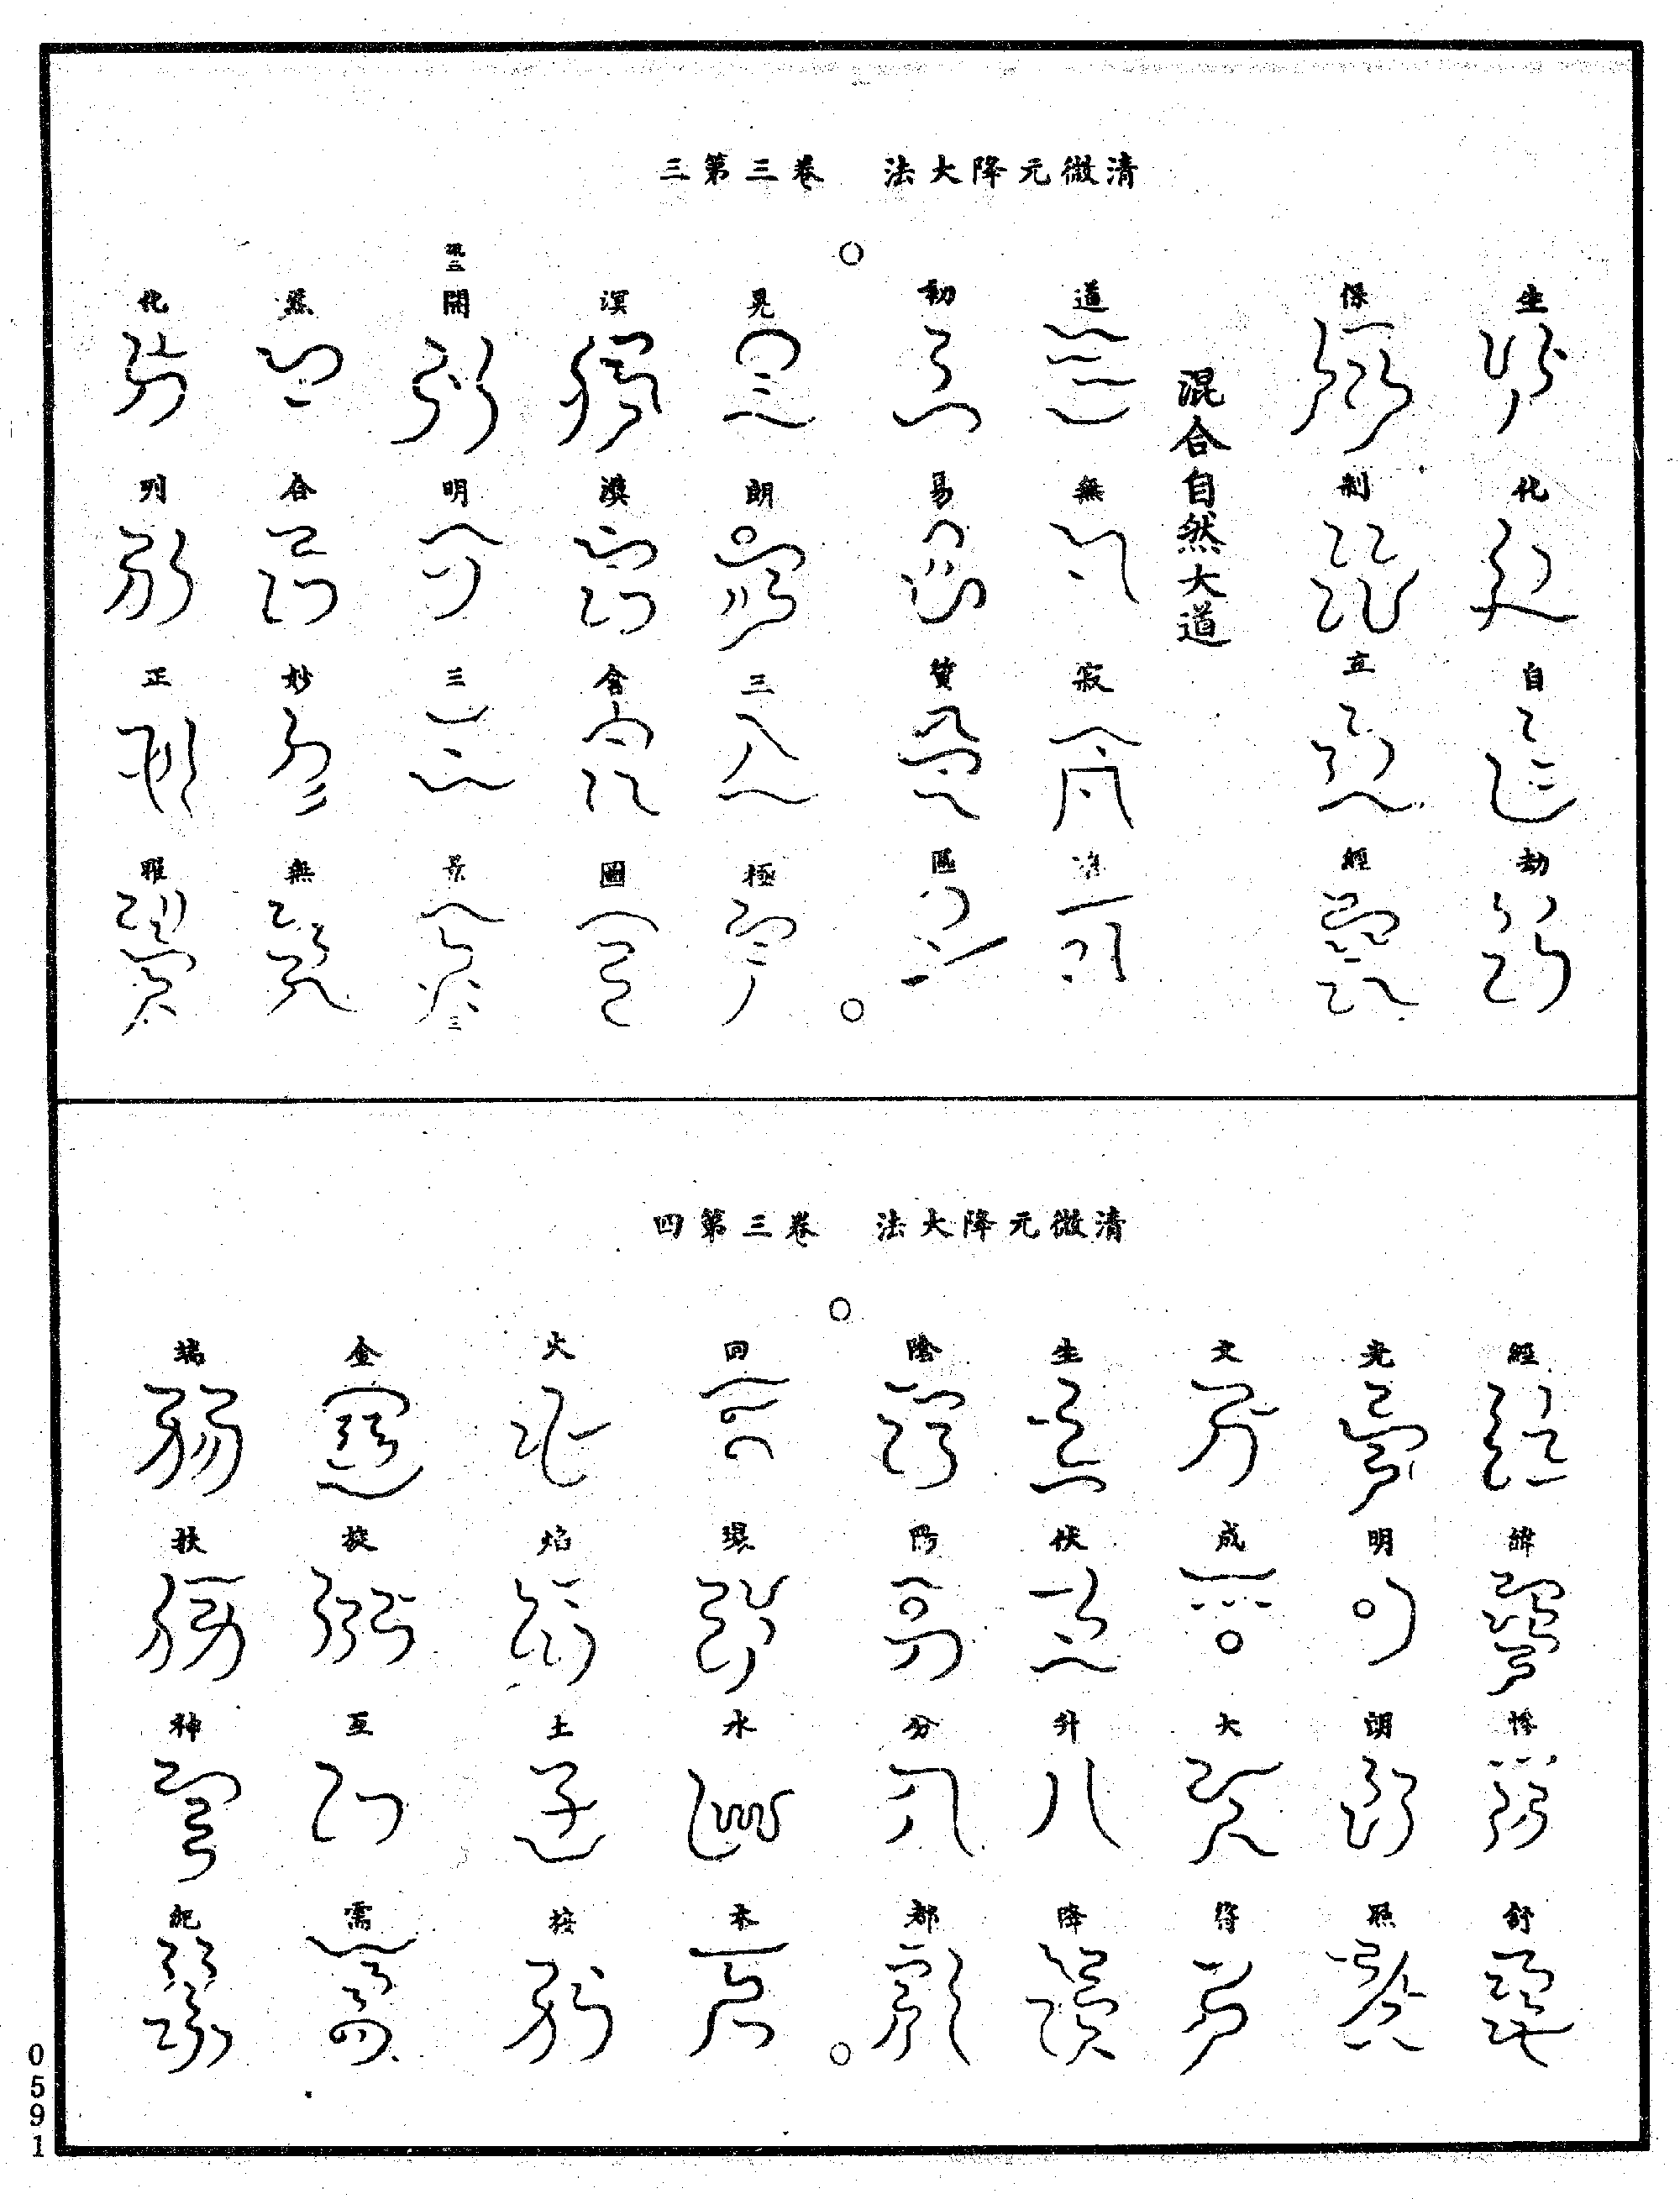 清微元降大法　卷三第三
生化自劫
保制立經
混合自然大道
道無寂
動易質區
晃朗三極
溟漠含圖
開明三景
合妙無
化列正
清微元降大法　卷三第四
經緯 舒
光明朗照
文成大符
生伏升降
陰陽分都
回環水木
火焰土
金旋互需
端扶神紀
0591